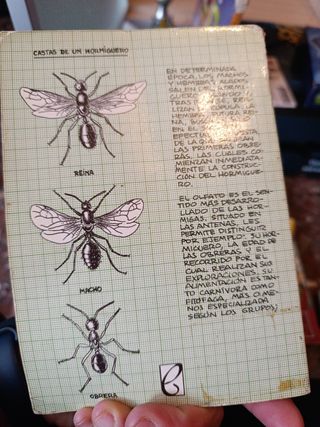 CASTAS DE UN HORMIGUERO
REINA
MACHO
OBRERA
EN DETERMINADA
ÉPOCA, LOS MACHOS
Y HEMBRAS ALADOS
SALEN DEL HORMI-
GUERO, SIENDO
TRAS LOS QUE REA-
LIZAN LA CÓPULA. LA
HEMBRA, FUTURA REI-
NA, BUSCA
EN EL SUELO
EFECTUAR LA PUESTA,
DE LA QUE SALDRÁN
LAS PRIMERAS OBRE-
RAS, LAS CUALES CO-
MIENZAN INMEDIATA-
MENTE LA CONSTRUC-
CIÓN DEL HORMIGUE-
RO.
EL OLFATO ES EL SEN-
TIDO MÁS DESARRO-
LLADO DE LAS HOR-
MIGAS. SITUADO EN
LAS ANTENAS, LES
PERMITE DISTINGUIR
POR EJEMPLO: SU HOR-
MIGUERO, LA EDAD DE
LAS OBRERAS Y EL
RECORRIDO POR EL
CUAL REALIZAN SUS
EXPLORACIONES. SU
ALIMENTACIÓN ES TAN-
TO CARNÍVORA COMO
FITÓFAGA, MÁS O ME-
NOS ESPECIALIZADA
SEGÚN LOS GRUPOS;